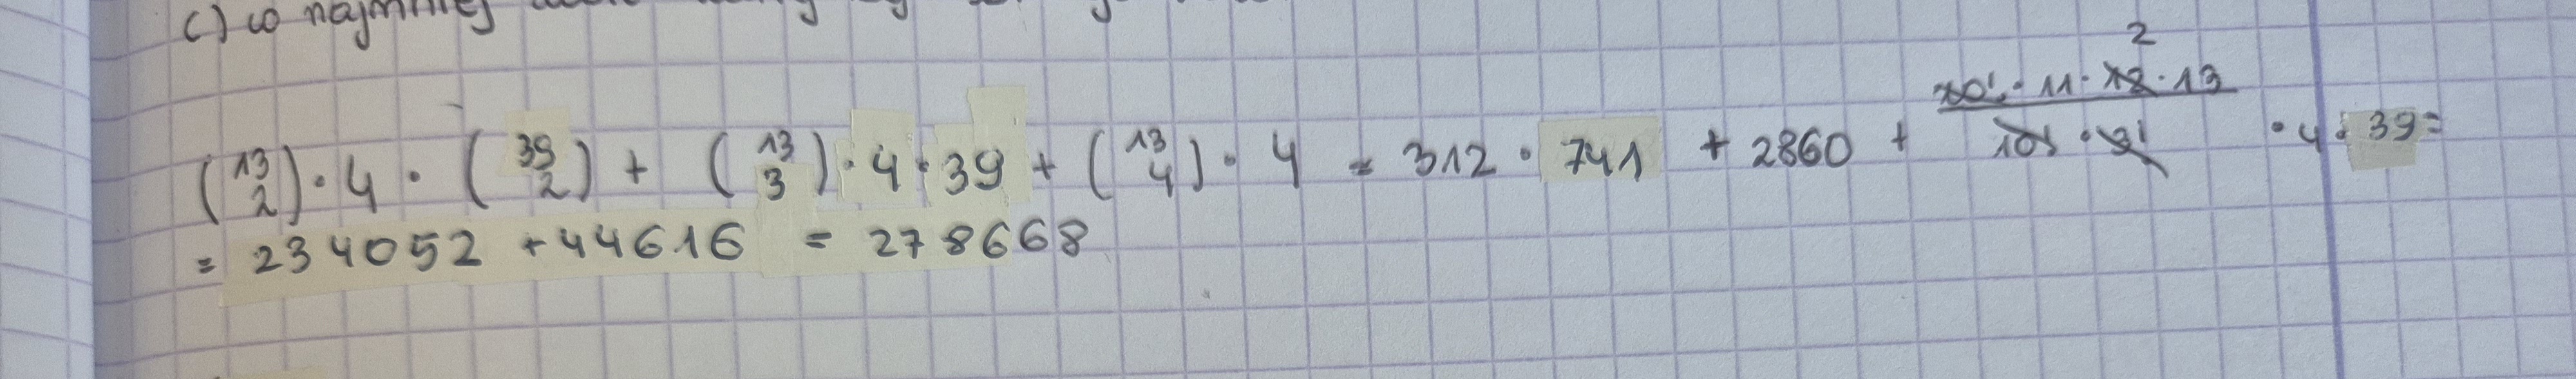 c) co najmniej
(13 2) · 4 · (39 2) + (13 3) · 4 · 39 + (13 4) · 4 = 312 · 741 + 2860 + (10! · 11 · 12 · 13)/(10! · 3!) · 4 · 39 =
= 234052 + 44616 = 278668